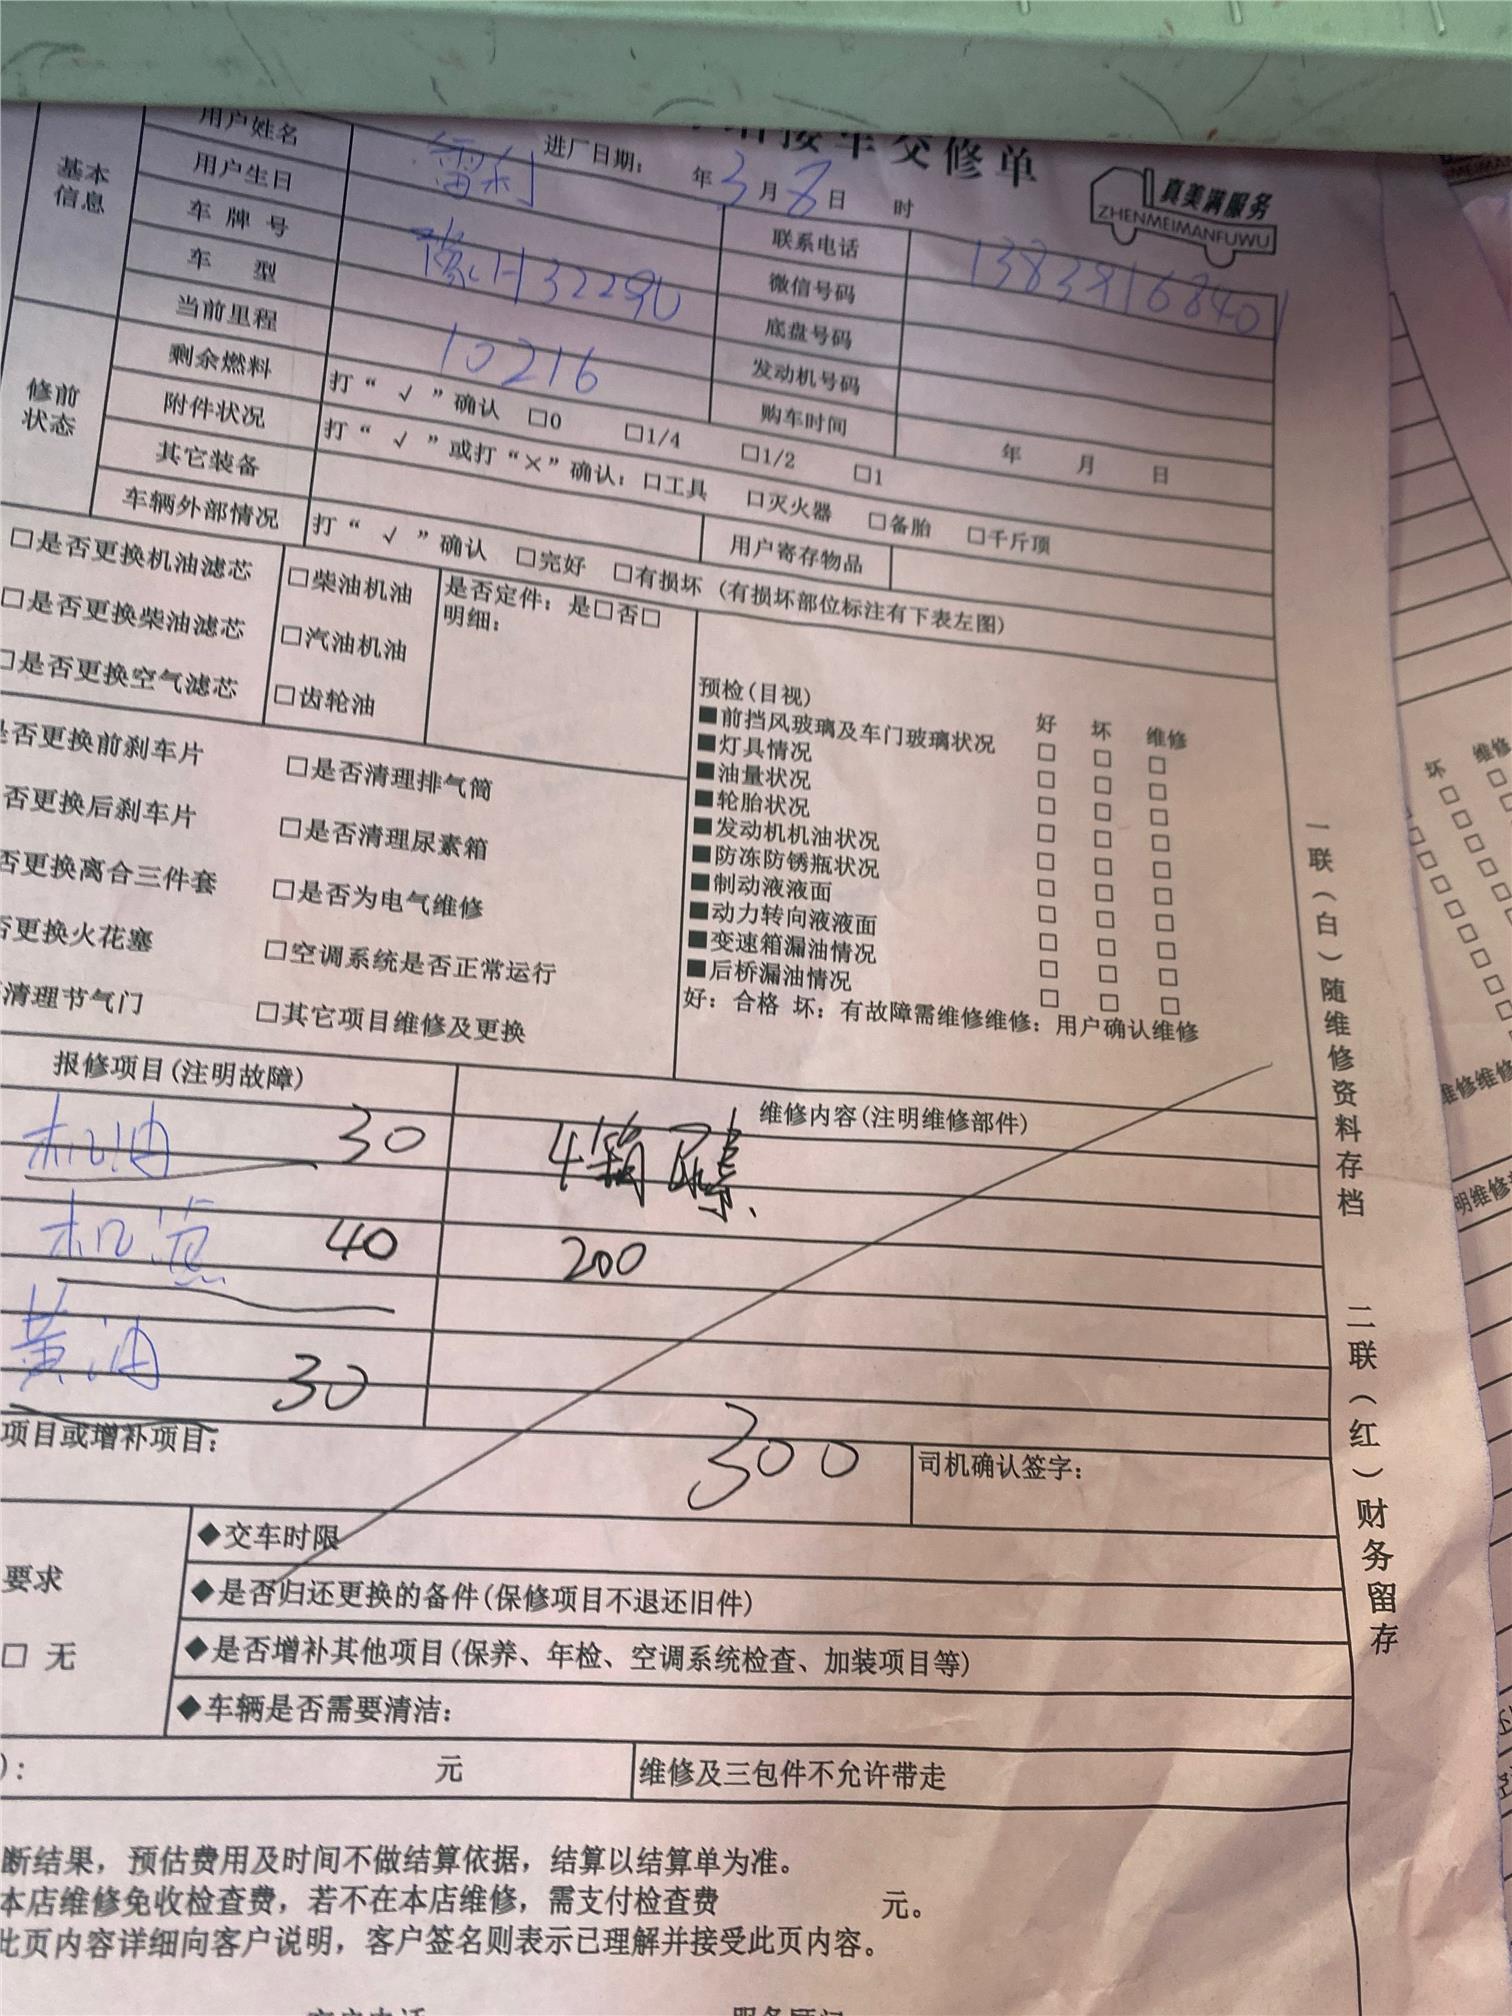 接车交修单
真美满服务
ZHENMEIMANFUWU
进厂日期： 年3月8日 时
基本信息
用户姓名 雷利
联系电话 13839168401
用户生日
微信号码
车牌号 豫H3229U
底盘号码
车型
发动机号码
当前里程 10216
购车时间 年 月 日
修前状态
剩余燃料 打“√”确认 □0 □1/4 □1/2 □1
附件状况 打“√”或打“×”确认：□工具 □灭火器 □备胎 □千斤顶
其它装备
用户寄存物品
车辆外部情况 打“√”确认 □完好 □有损坏（有损坏部位标注有下表左图）
□是否更换机油滤芯
□是否更换柴油滤芯
□是否更换空气滤芯
□柴油机油
□汽油机油
□齿轮油
是否定件：是□否□
明细：
是否更换前刹车片
否更换后刹车片
否更换离合三件套
否更换火花塞
清理节气门
□是否清理排气筒
□是否清理尿素箱
□是否为电气维修
□空调系统是否正常运行
□其它项目维修及更换
预检(目视) 好 坏 维修
■前挡风玻璃及车门玻璃状况 □ □ □
■灯具情况 □ □ □
■油量状况 □ □ □
■轮胎状况 □ □ □
■发动机机油状况 □ □ □
■防冻防锈瓶状况 □ □ □
■制动液液面 □ □ □
■动力转向液液面 □ □ □
■变速箱漏油情况 □ □ □
■后桥漏油情况 □ □ □
好：合格 坏：有故障需维修维修：用户确认维修
报修项目(注明故障)
维修内容(注明维修部件)
机油 30 4箱尿素
机滤 40 200
黄油 30
项目或增补项目：
300
司机确认签字：
要求
□ 无
◆交车时限
◆是否归还更换的备件(保修项目不退还旧件)
◆是否增补其他项目(保养、年检、空调系统检查、加装项目等)
◆车辆是否需要清洁：
)： 元
维修及三包件不允许带走
断结果，预估费用及时间不做结算依据，结算以结算单为准。
本店维修免收检查费，若不在本店维修，需支付检查费 元。
此页内容详细向客户说明，客户签名则表示已理解并接受此页内容。
一联（白）随维修资料存档 二联（红）财务留存
坏 维修
维修维修
明维修